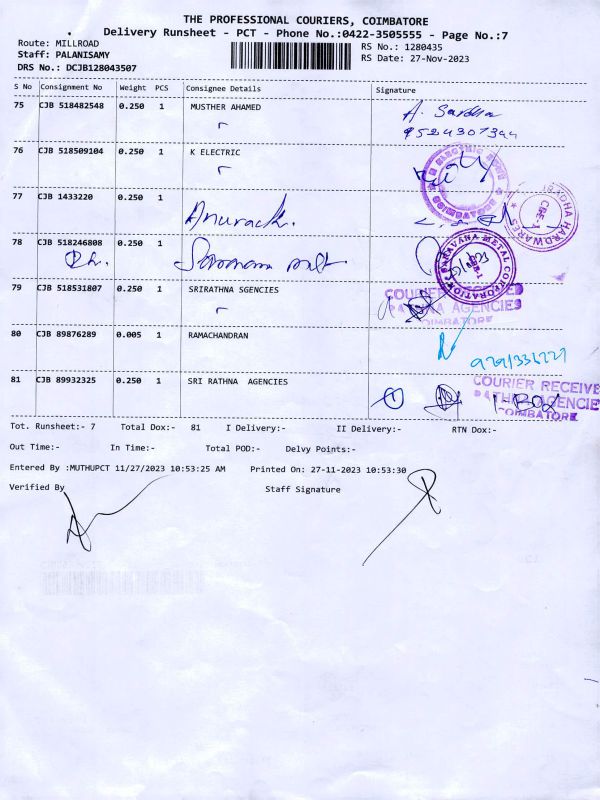 THE PROFESSIONAL COURIERS, COIMBATORE
Delivery Runsheet - PCT - Phone No.:0422-3505555 - Page No.:7
Route: MILLROAD
RS No.: 1280435
Staff: PALANISAMY
RS Date: 27-Nov-2023
DRS No.: DCJB128043507
S No Consignment No Weight PCS Consignee Details Signature
75 CJB 518482548 0.250 1 MUSTHER AHAMED
76 CJB 518509104 0.250 1 K ELECTRIC
77 CJB 1433220 0.250 1
Anurack.
78 CJB 518246808 0.250 1
SARAVANA METAL CORPORATION
79 CJB 518531807 0.250 1 SRIRATHNA SGENCIES
COURIER RECEIVED
RATHNA AGENCIES
COIMBATORE
80 CJB 89876289 0.005 1 RAMACHANDRAN
81 CJB 89932325 0.250 1 SRI RATHNA AGENCIES
COURIER RECEIVE
RATHNA AGENCIE
COIMBATORE
Tot. Runsheet:- 7 Total Dox:- 81 I Delivery:- II Delivery:- RTN Dox:-
Out Time:- In Time:- Total POD:- Delvy Points:-
Entered By :MUTHUPCT 11/27/2023 10:53:25 AM Printed On: 27-11-2023 10:53:30
Verified By Staff Signature